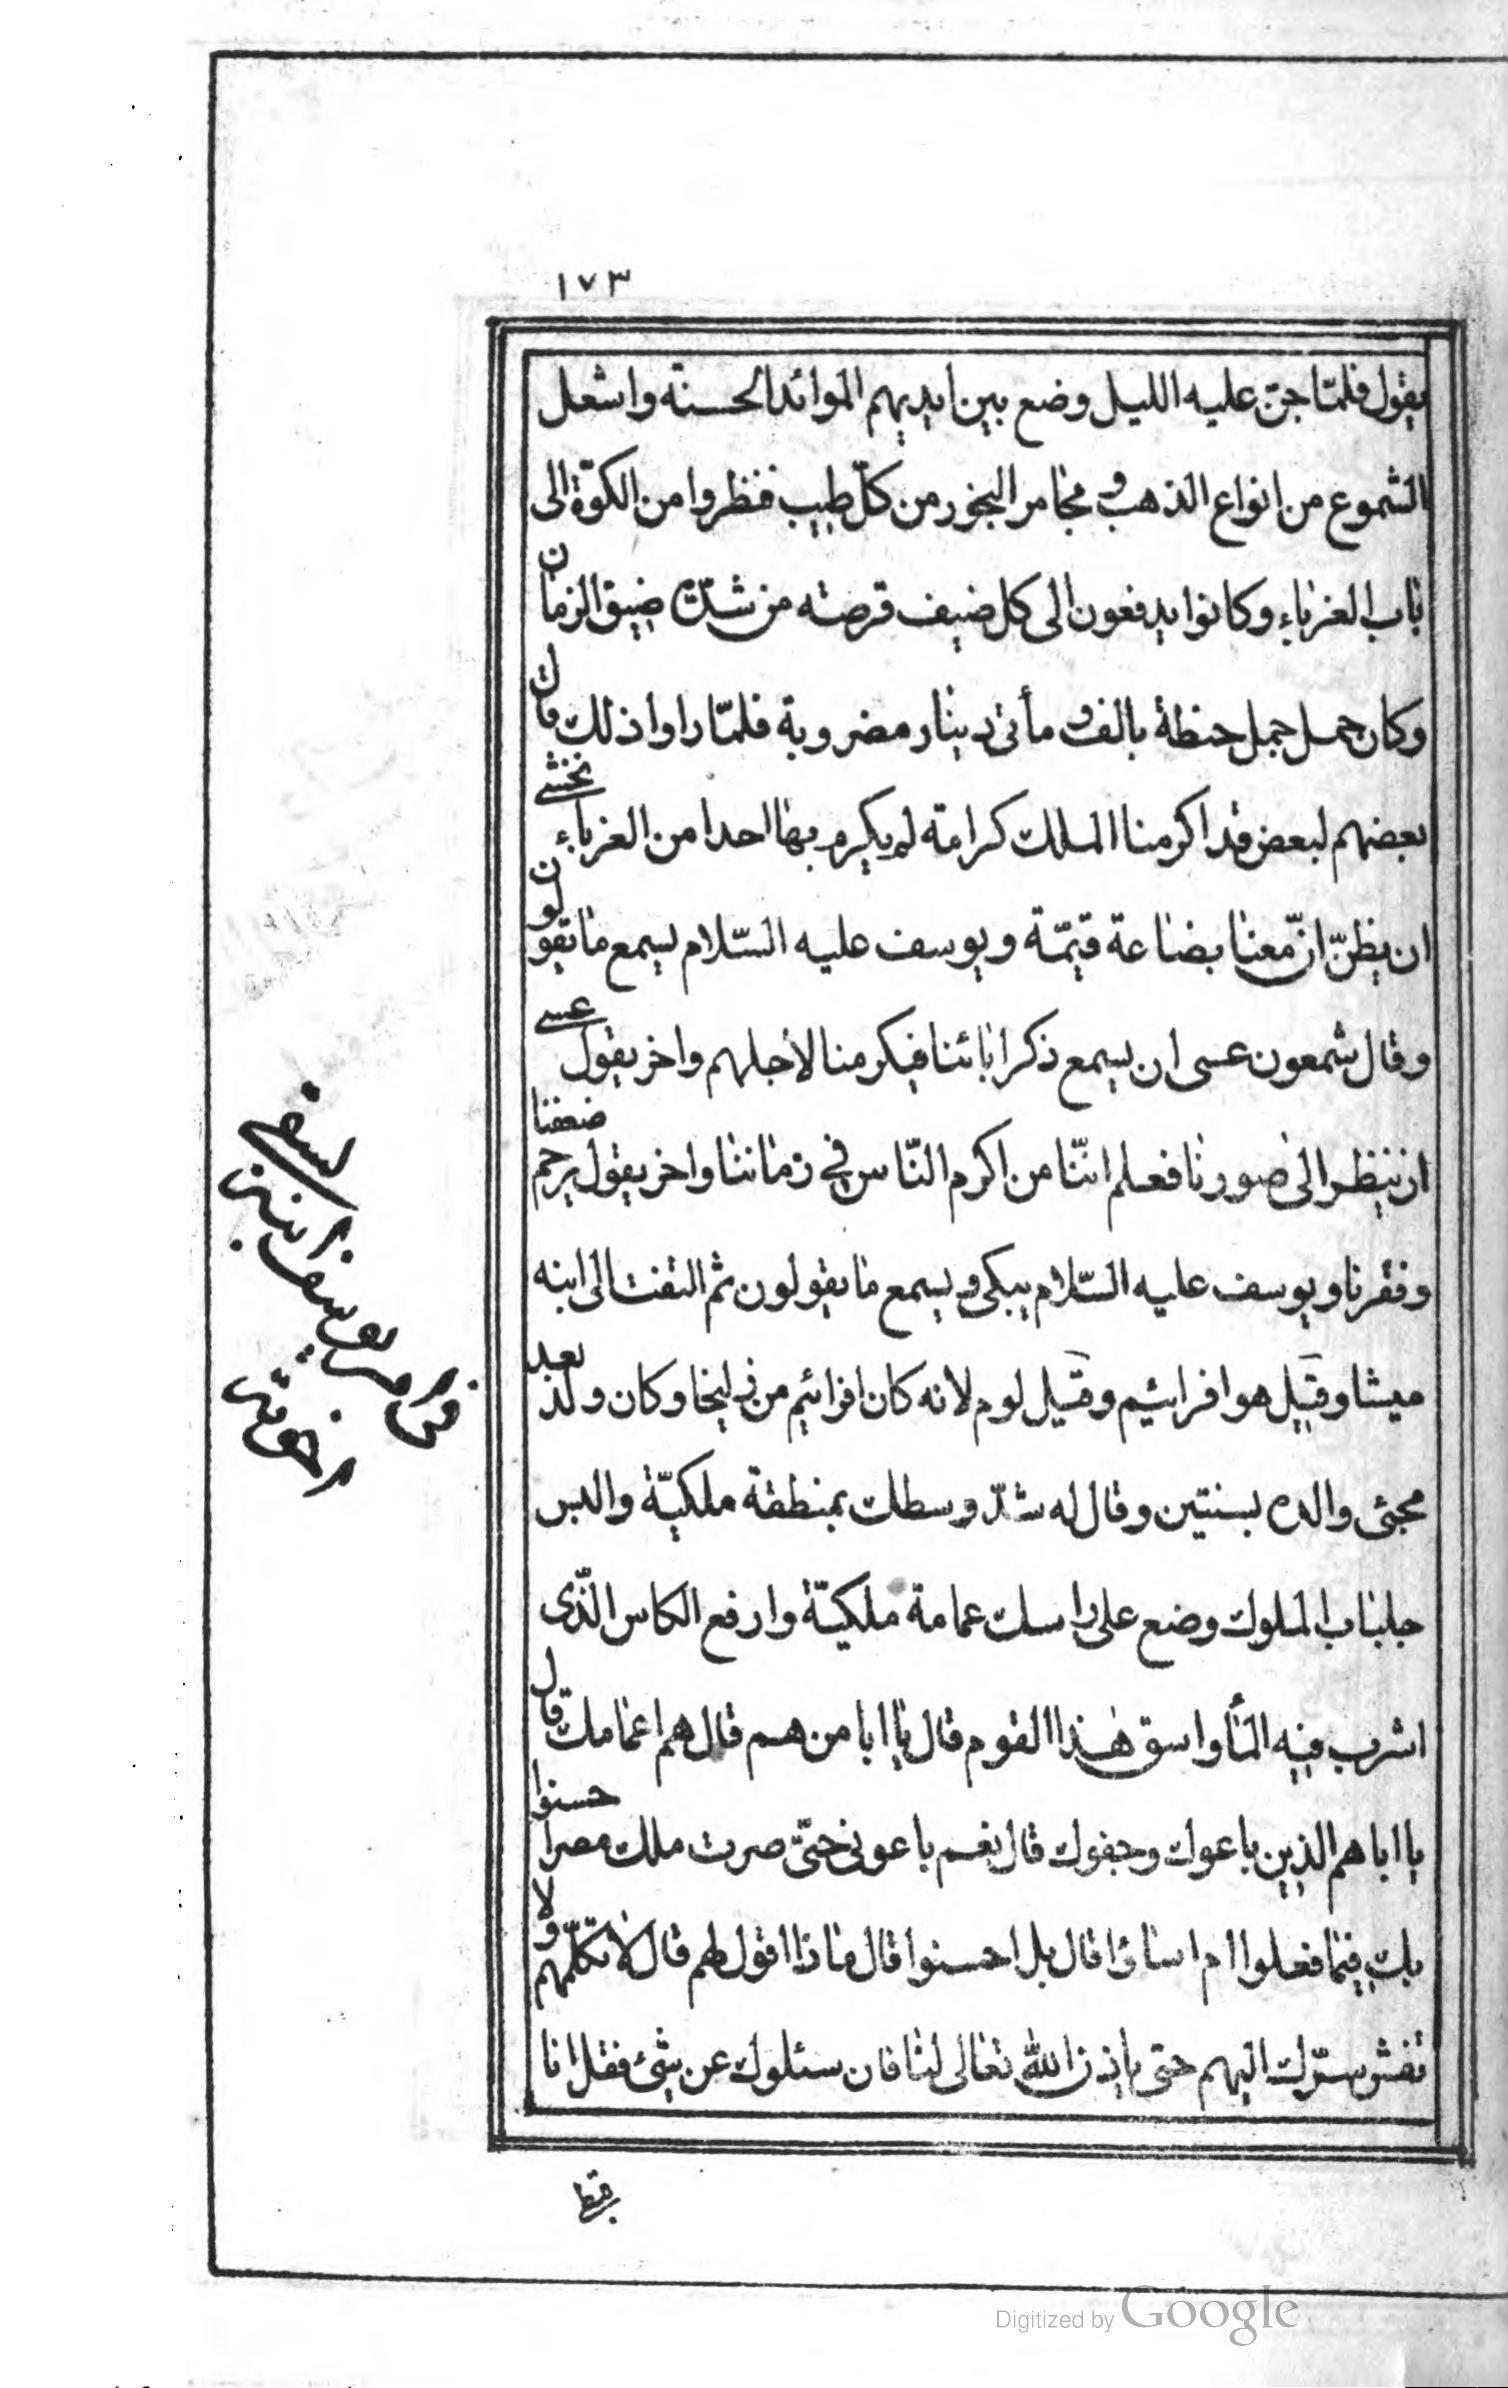 ١٧٣
يقول فلمّا جنّ عليه الليل وضع بين ايديهم الموائد الحسنة واشعل
الشموع من انواع الذهب و مجامر البخور من كلّ طيب فنظروا من الكوّة الى
باب الغرباء وكانوا يدفعون الى كل ضيف قرصته من شدّة ضيق الزمان
وكان حمل جمل حنطة بالف و مأتى دينار مضروبة فلمّا راوا ذلك قال
بعضهم لبعض قد اكرمنا الملك كرامة لم يكرم بها احدا من الغرباء نخشى
ان يظنّ انّ معنا بضاعة قيمّة و يوسف عليه السّلام يسمع ما يقولون
وقال شمعون عسى ان يسمع ذكر ابائنا فيكرمنا لاجلهم واخر يقول عسى
ان ينظر الى صورنا فعلم انّنا من اكرم النّاس في زماننا واخر يقول يرحم ضعفنا
و فقرنا و يوسف عليه السّلام يبكى و يسمع ما يقولون ثم التفت الى ابنه
ميشا وقيل هو افرائيم وقيل لوم لانه كان افرائيم من زليخا وكان ولد بعد
مجئى والده بسنتين وقال له شدّ وسطك بمنطقة ملكيّة والبس
جلباب الملوك وضع على راسك عمامة ملكيّة وارفع الكاس الّذى
اشرب فيه المأ واسق هٰذا القوم قال يا ابا من هم قال هم اعمامك قال
يا ابا هم الذين باعوك وجفوك قال نعم باعونى حتّى صرت ملك مصر احسنوا
بك فيما فعلوا ام اساؤا قال بل احسنوا قال ماذا اقول لهم قال لا تكلّمهم ولا
تفش سرّك اليهم حتى ياذن الله تعالى لنا فان سئلوك عن شئ فقل انا
امر يوسف ابنه
ليسقى
اخوته
Digitized by Google